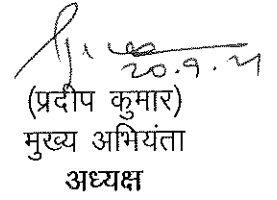 20.9.21
(प्रदीप कुमार)
मुख्य अभियंता
अध्यक्ष